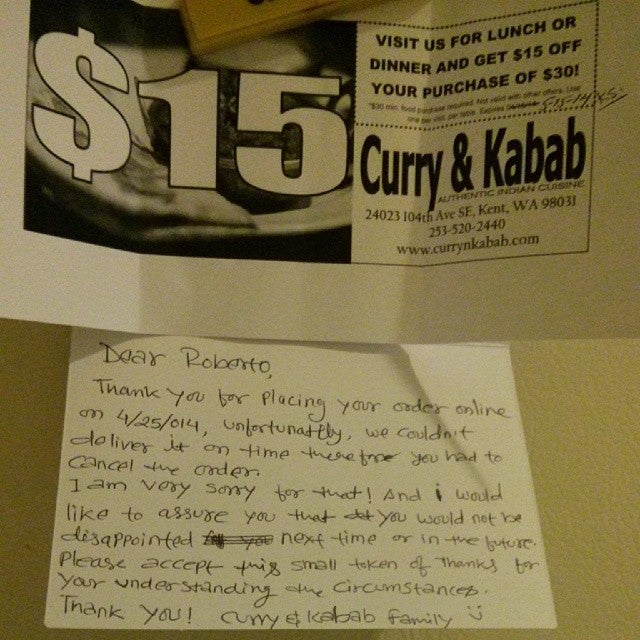 $15
VISIT US FOR LUNCH OR
DINNER AND GET $15 OFF
YOUR PURCHASE OF $30!
*$30 min. food purchase required. Not valid with other offers. Use
one per visit, per table. Expires
Curry & Kabab
AUTHENTIC INDIAN CUISINE
24023 104th Ave SE, Kent, WA 98031
253-520-2440
www.currynkabab.com
Dear Roberto,
Thank you for placing your order online
on 4/25/014, unfortunattly, we couldn't
deliver it on time therefore you had to
cancel the order.
I am very sorry for that! And i would
like to assure you that you would not be
disappointed next time or in the future.
Please accept this small token of Thanks for
your understanding the circumstances.
Thank you! Curry & Kabab family